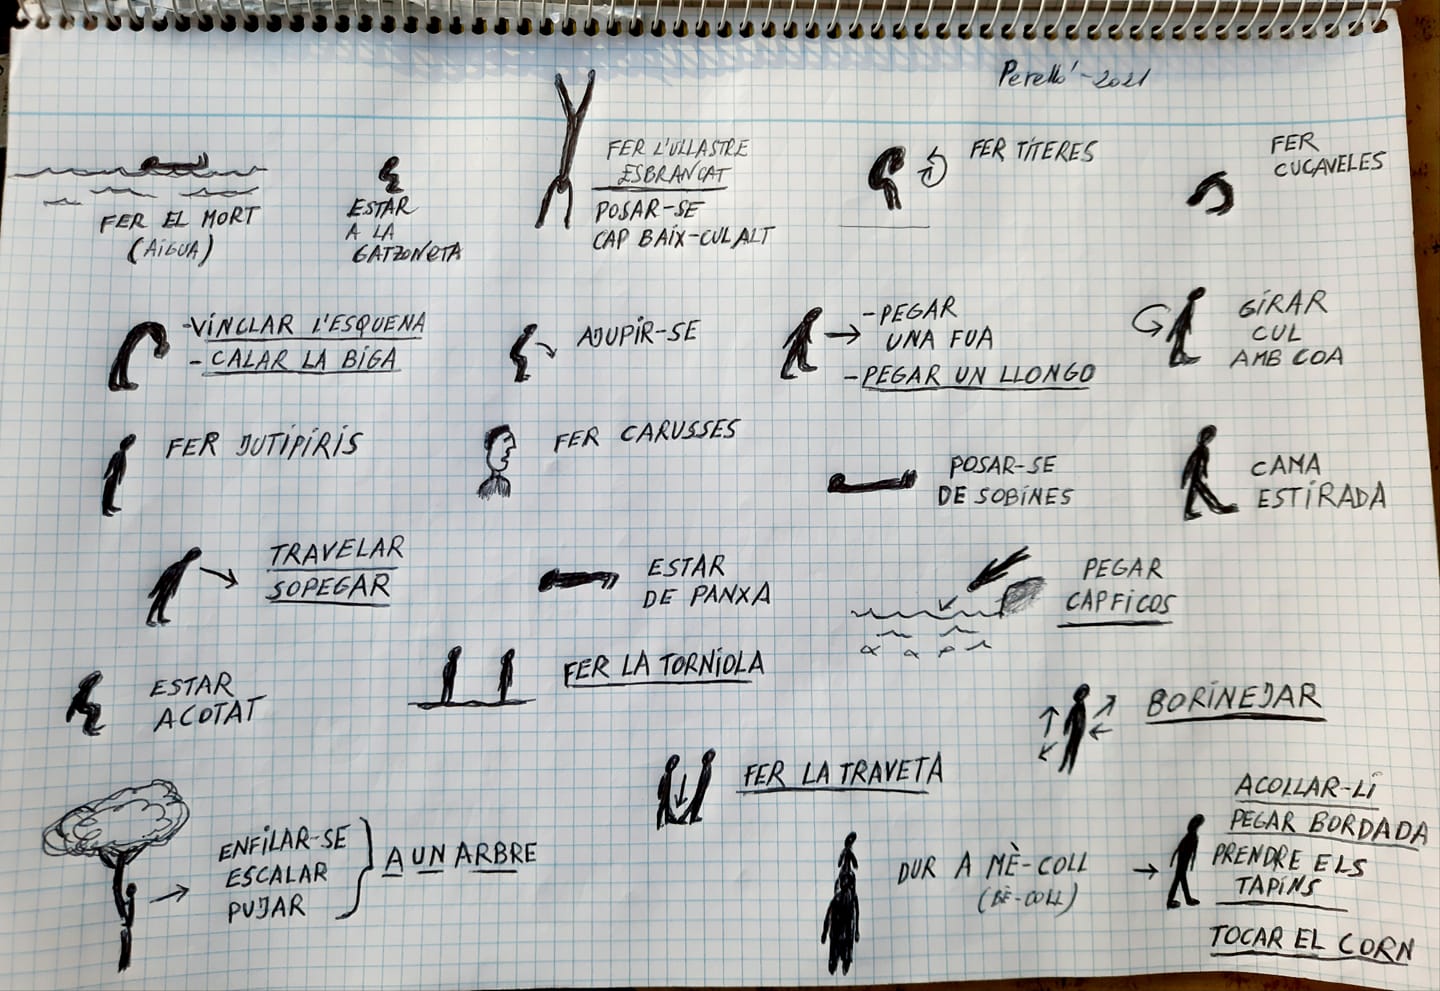 Perelló - 2021
FER EL MORT
(AIGUA)
ESTAR
A LA
GATZONETA
FER L'ULLASTRE
ESBRANCAT
POSAR-SE
CAP BAIX-CUL ALT
FER TÍTERES
FER
CUCAVELES
-VINCLAR L'ESQUENA
- CALAR LA BIGA
AJUPIR-SE
-PEGAR
UNA FUA
-PEGAR UN LLONGO
GIRAR
CUL
AMB COA
FER JUTIPIRIS
FER CARUSSES
POSAR-SE
DE SOBINES
CAMA
ESTIRADA
TRAVELAR
SOPEGAR
ESTAR
DE PANXA
PEGAR
CAPFICOS
ESTAR
ACOTAT
FER LA TORNIOLA
BORINEJAR
FER LA TRAVETA
ENFILAR-SE
ESCALAR
PUJAR
A UN ARBRE
DUR A MÈ-COLL
(BÈ-COLL)
ACOLLAR-LI
PEGAR BORDADA
PRENDRE ELS
TAPINS
TOCAR EL CORN